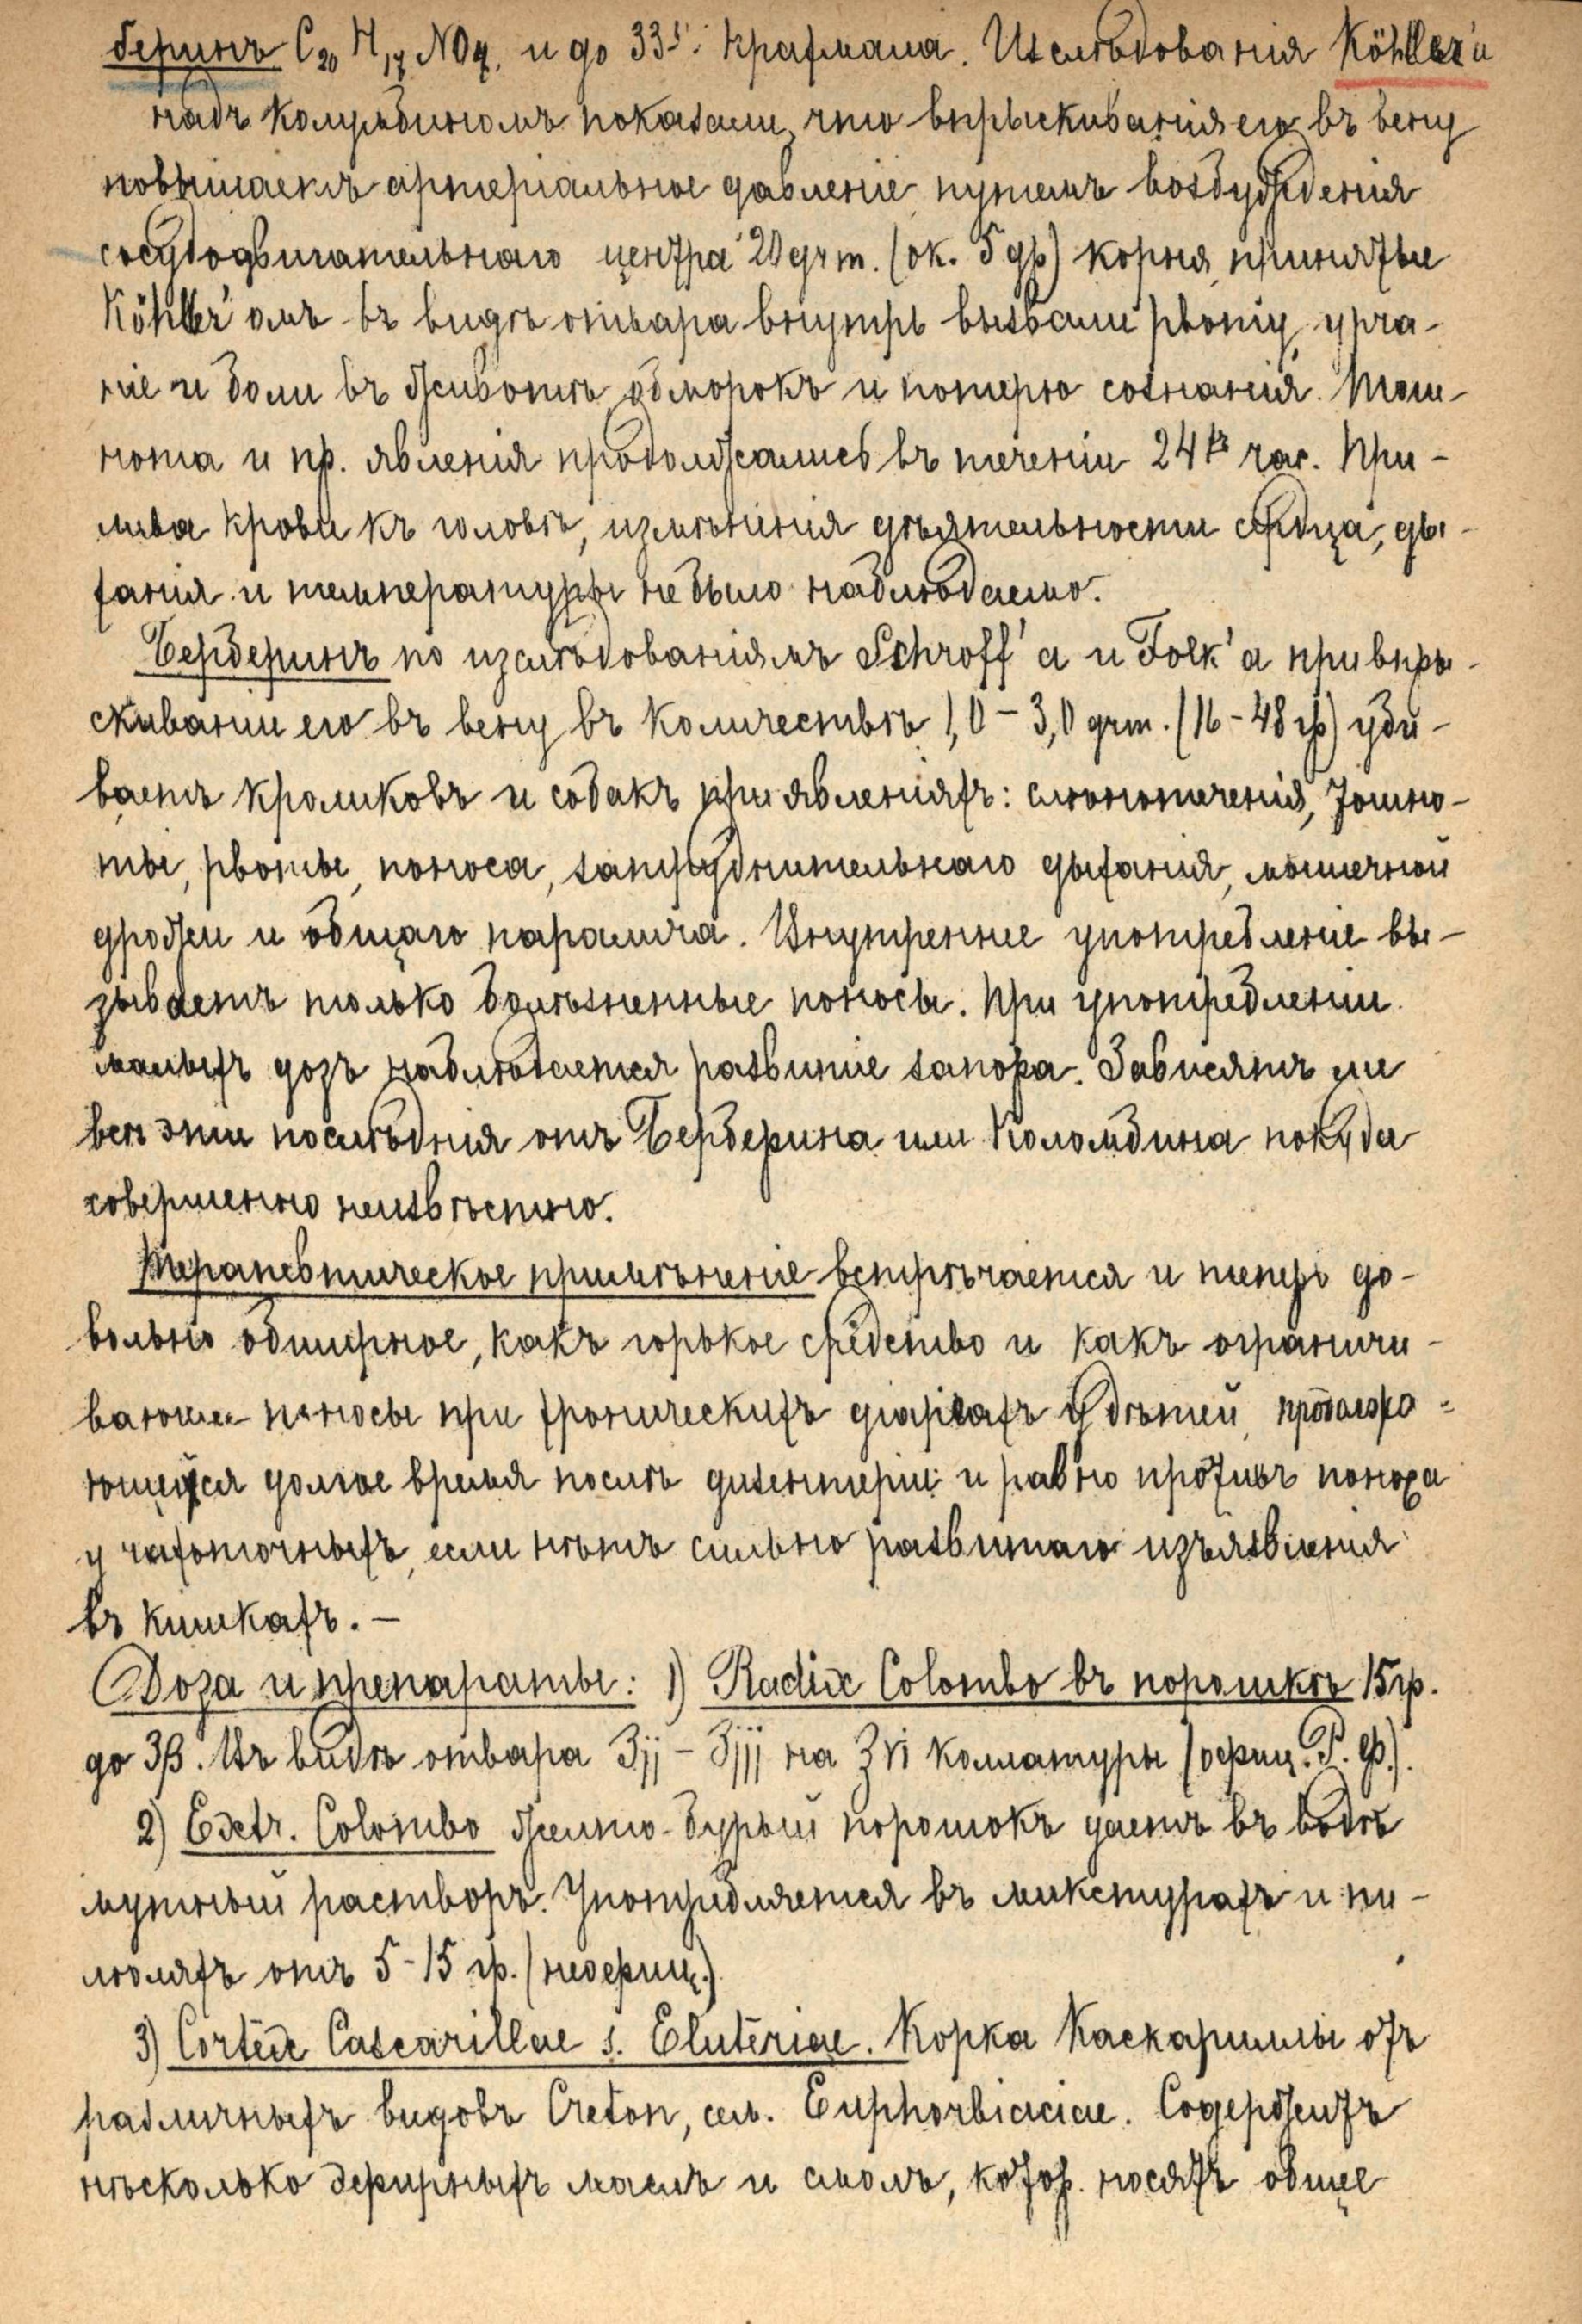 беринъ C₂₀ H₁₇ NO₄, и до 33% крахмала. Изслѣдованія Köhler'а
надъ Колумбиномъ показали, что впрыскиванія его въ вену
повышаетъ артеріальное давленіе путемъ возбужденія
сосудодвигательнаго центра 20 grm. (ок. 5 др) корня, принятые
Köhler'омъ въ видѣ отвара внутрь вызвали рвоту, урча-
ніе и боли въ животѣ, обморокъ и потерю сознанія. Тош-
нота и пр. явленія продолжались въ теченіи 24х час. При-
лива крови къ головѣ, измѣненія дѣятельности сердца, ды-
ханія и температуры не было наблюдаемо.
Берберинъ по изслѣдованіямъ Schroff'а и Folk'а при впры-
скиваніи его въ вену въ количествѣ 1,0 – 3,0 grm. (16 – 48 гр) уби-
ваетъ кроликовъ и собакъ при явленіяхъ: слюнотеченія, тошно-
ты, рвоты, поноса, затруднительнаго дыханія, мышечной
дрожи и общаго паралича. Внутренне употребленіе вы-
зываетъ только болѣзненные поносы. При употребленіи
малыхъ дозъ наблюдается развитіе запора. Зависятъ ли
всѣ эти послѣднія отъ Берберина или Коломбина покуда
совершенно неизвѣстно.
Терапевтическое примѣненіе встрѣчается и теперь до-
вольно обширное, какъ горькое средство и какъ ограничи-
вающее поносы при хроническихъ діарреахъ у дѣтей, продолжа-
ющейся долгое время послѣ дизентеріи и равно противъ поноса
у чахоточныхъ, если нѣтъ сильно развитаго изъязвленія
въ кишкахъ. –
Доза и препараты: 1) Radix Colombo въ порошкѣ 15 гр.
до ʒβ. Въ видѣ отвара ʒij – ʒiij на ℥vi коллатуры (офиц. Р. Ф.).
2) Extr. Colombo желто-бурый порошокъ даетъ въ водѣ
мутный растворъ. Употребляется въ микстурахъ и пи-
люляхъ отъ 5 – 15 гр. (неофиц.)
3) Cortex Cascarillae s. Eluteriae. Корка Каскариллы отъ
различныхъ видовъ Creton, сем. Euphorbiaciae. Содержитъ
нѣсколько эфирныхъ маслъ и смолъ, котор. носятъ общее